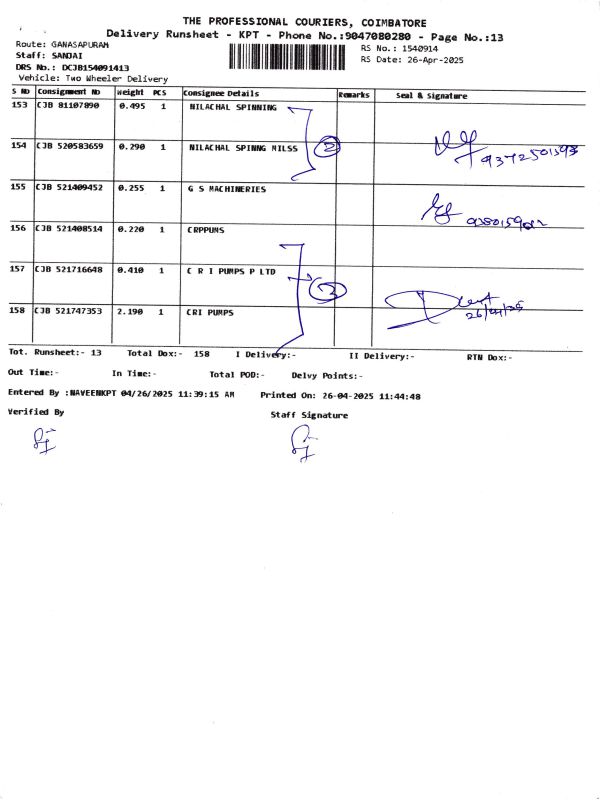 THE PROFESSIONAL COURIERS, COIMBATORE
Delivery Runsheet - KPT - Phone No.:9047080280 - Page No.:13
Route: GANASAPURAM
RS No.: 1540914
Staff: SANJAI
RS Date: 26-Apr-2025
DRS No.: DCJB154091413
Vehicle: Two Wheeler Delivery
S No Consignment No Weight PCS Consignee Details Remarks Seal & Signature
153 CJB 81107890 0.495 1 NILACHAL SPINNING
154 CJB 520583659 0.290 1 NILACHAL SPINNG MILSS 2
155 CJB 521409452 0.255 1 G S MACHINERIES
156 CJB 521408514 0.220 1 CRPPUMS
157 CJB 521716648 0.410 1 C R I PUMPS P LTD
158 CJB 521747353 2.190 1 CRI PUMPS
26/04/25
Tot. Runsheet:- 13 Total Dox:- 158 I Delivery:- II Delivery:- RTN Dox:-
Out Time:- In Time:- Total POD:- Delvy Points:-
Entered By :NAVEENKPT 04/26/2025 11:39:15 AM Printed On: 26-04-2025 11:44:48
Verified By Staff Signature